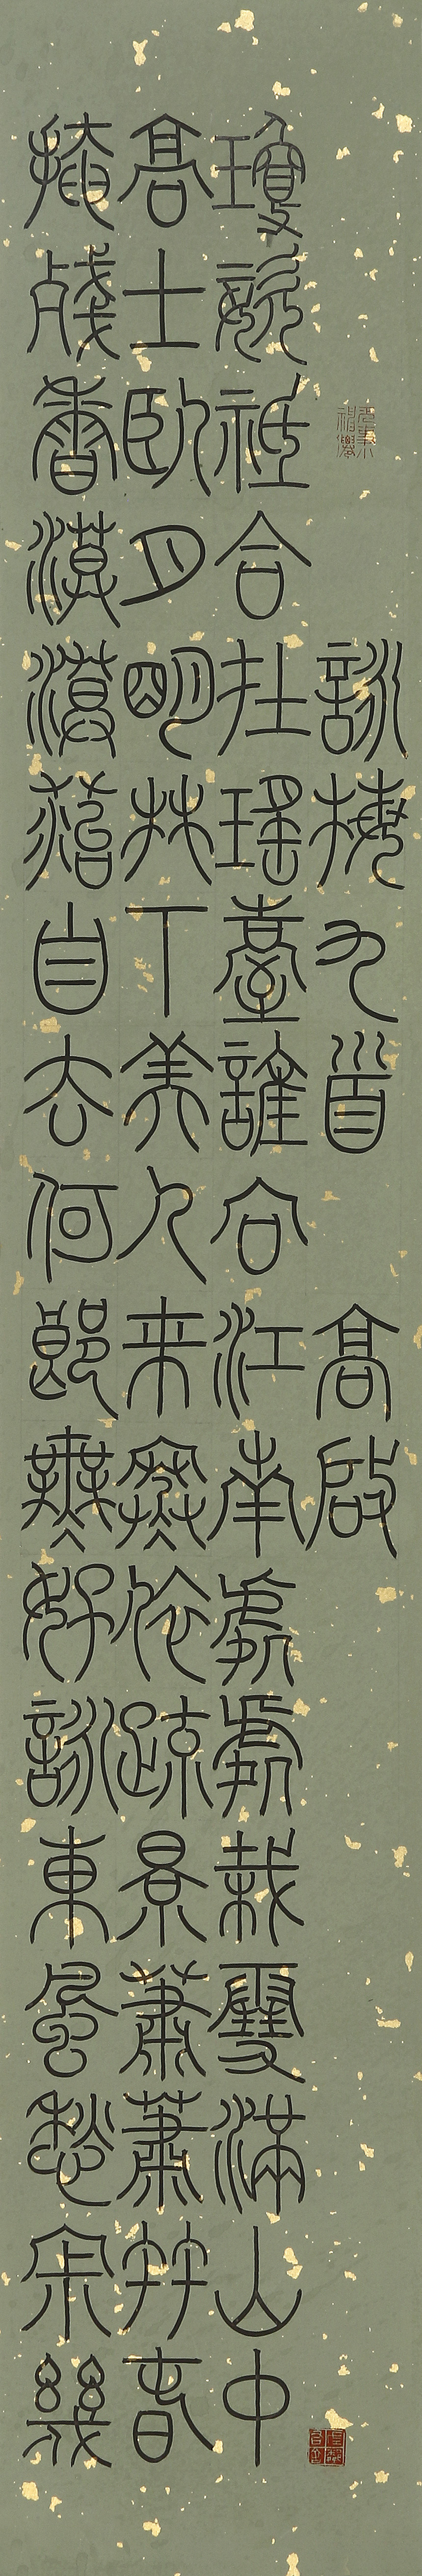 詠梅九首 高啟
瓊姿祗合在瑤臺誰向江南處處栽雪滿山中
高士臥月明林下美人來寒依疏景蕭蕭竹春
掩殘香漠漠菭自去何郎無好詠東風愁寂幾